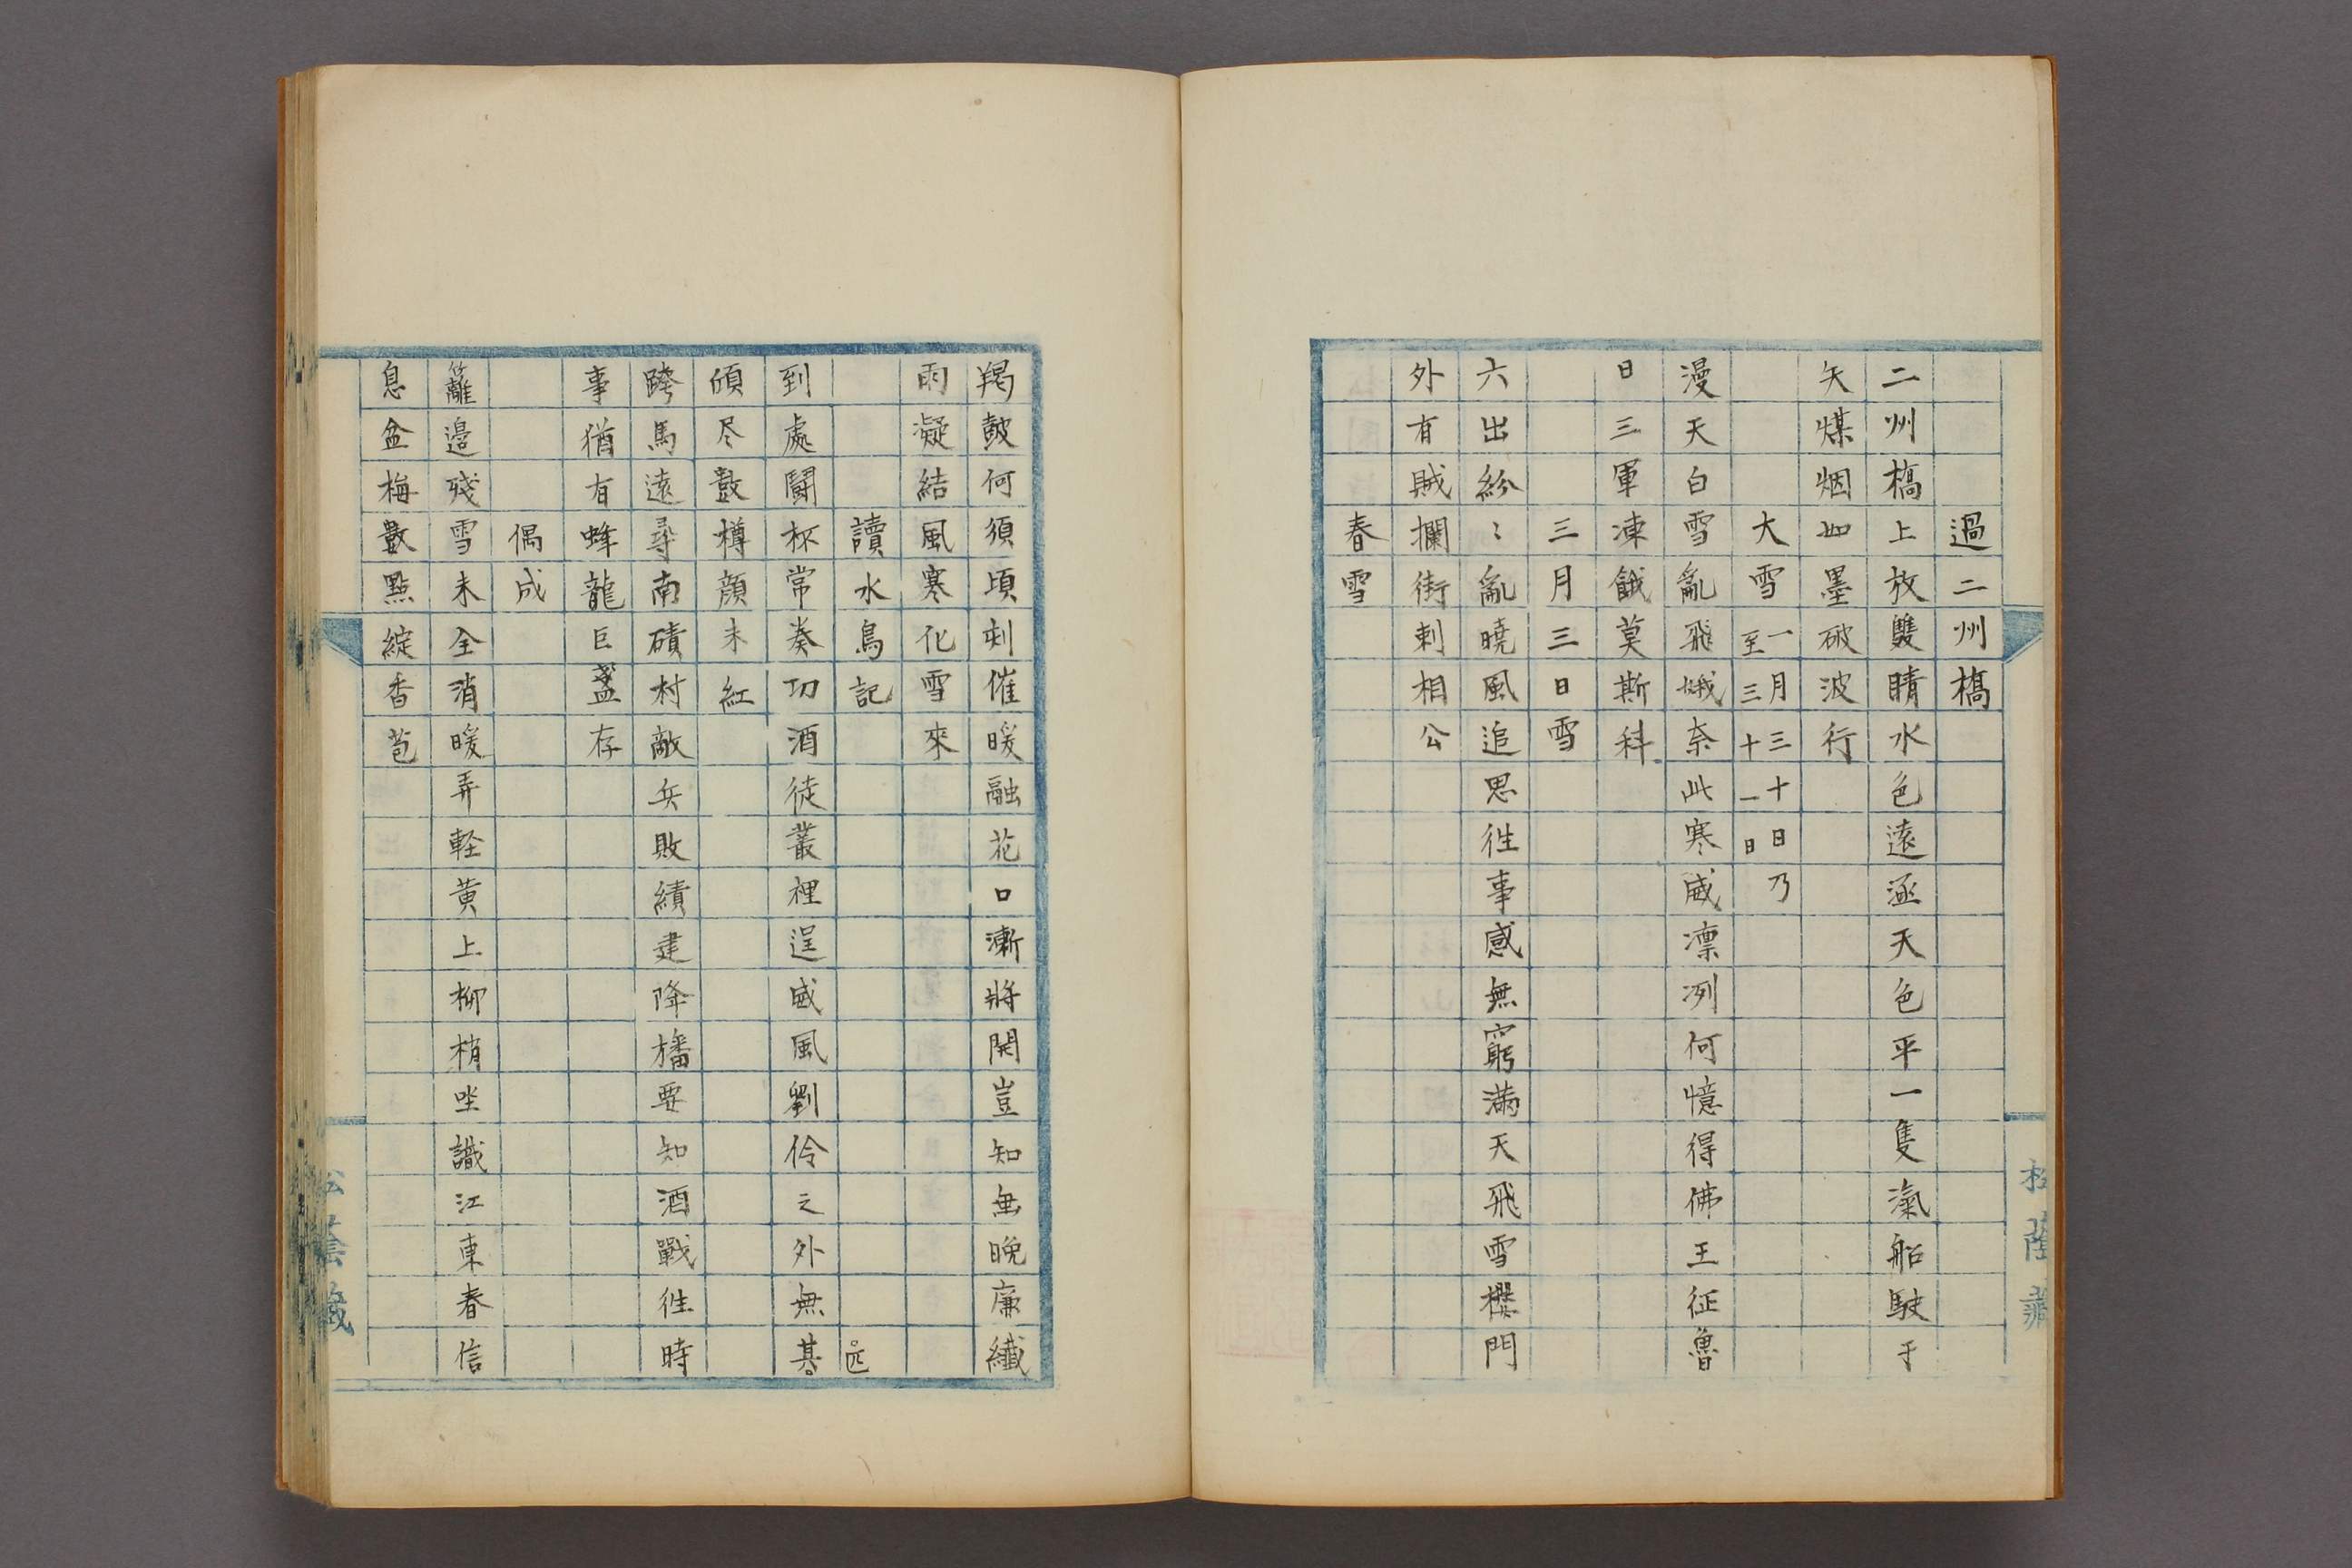 過二州槗
二州槗上放雙睛水色遠逐天色平一隻滊船駛于
矢煤烟如墨破波行
大雪一月三十日乃至三十一日
漫天白雪亂飛娥奈此寒威凛冽何憶得佛王征魯
日三軍凍餓莫斯科
三月三日雪
六出紛〻亂曉風追思徃事感無窮満天飛雪櫻門
外有賊攔街刺相公
春雪
羯皷何須頃刻催暖融花口漸將開豈知無晚廉纎
雨凝結風寒化雪來
讀水鳥記
到處鬪杯常奏功酒徒叢裡逞威風劉伶之外無其匹
傾尽數樽顔未紅
跨馬遠尋南磧村敵兵敗績建降旛要知酒戰徃時
事猶有蜂龍巨盞存
偶成
籬邉殘雪未全消暖弄軽黄上柳梢坐識江東春信
息盆梅數點綻香苞
松蔭藏